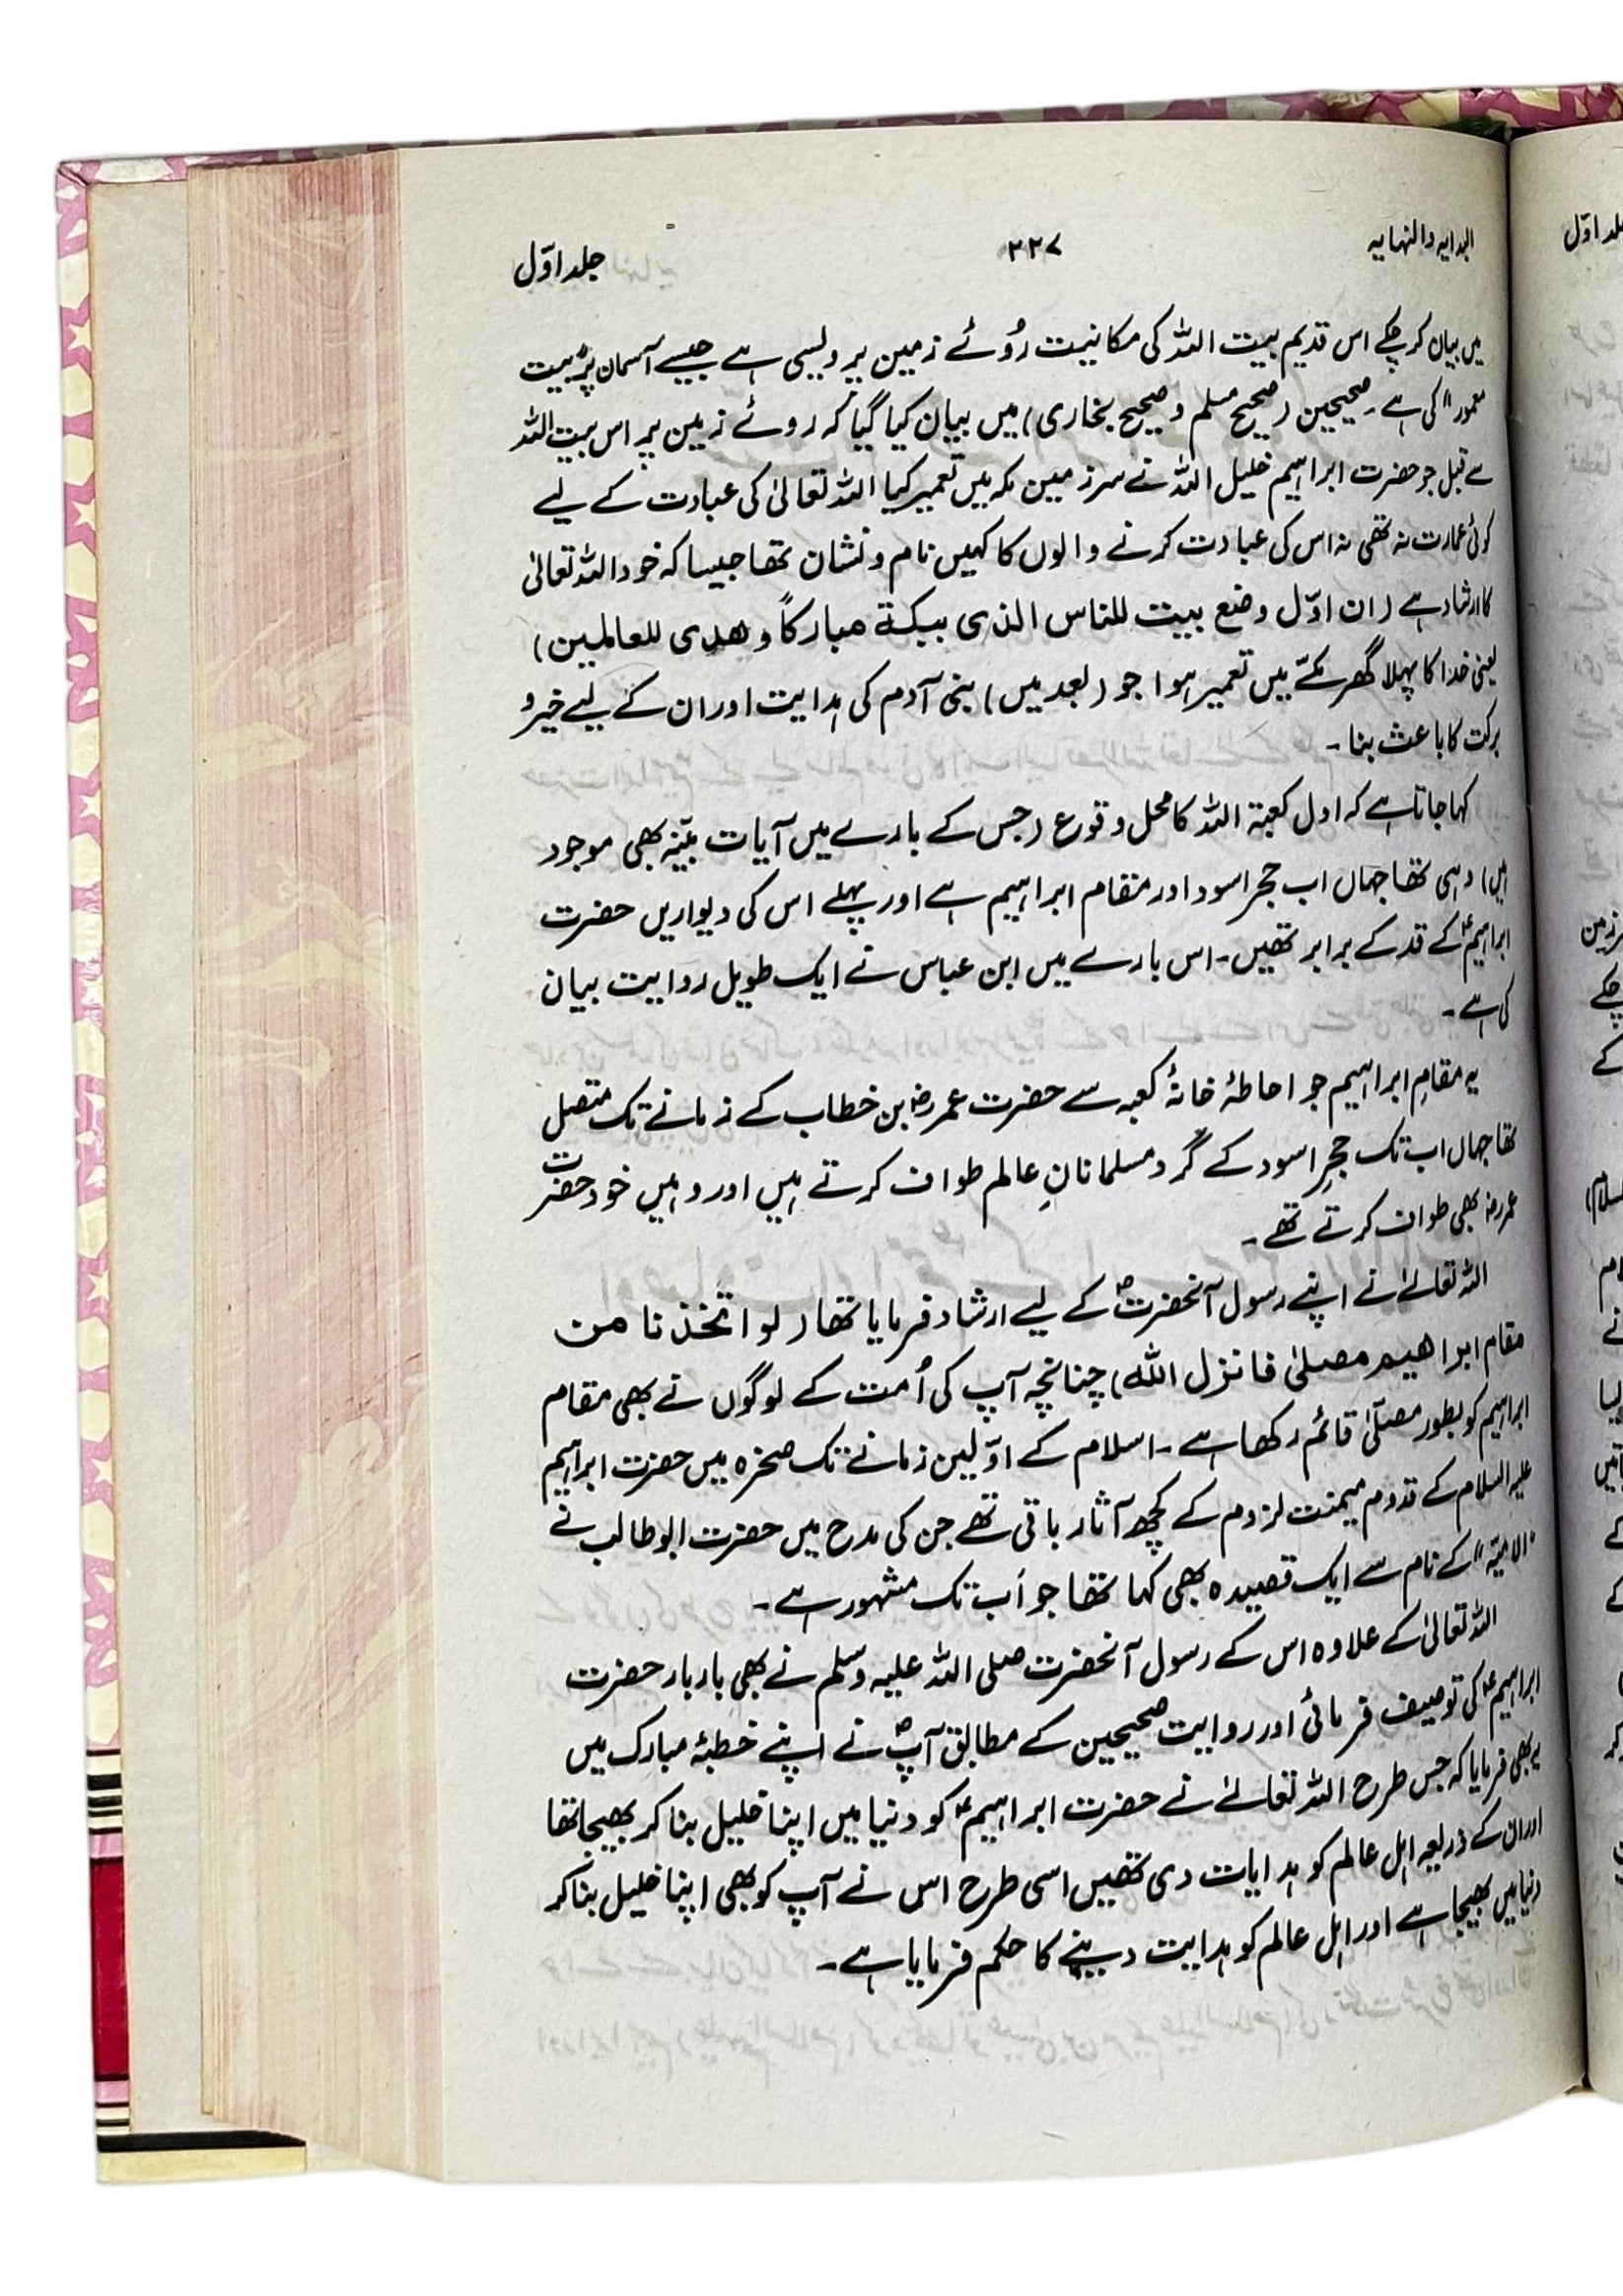 البدایہ والنہایہ ۲۲۷ جلد اوّل
میں بیان کر چکے اس قدیم بیت اللہ کی مکانیت رُوئے زمین پر ویسی ہے جیسے آسمان پر "بیت
معمور" کی ہے۔ صحیحین (صحیح مسلم و صحیح بخاری) میں بیان کیا گیا کہ روئے زمین پر اس بیت اللہ
سے قبل جو حضرت ابراہیم خلیل اللہ نے سرزمین مکہ میں تعمیر کیا اللہ تعالیٰ کی عبادت کے لیے
کوئی عمارت نہ تھی نہ اس کی عبادت کرنے والوں کا کہیں نام و نشان تھا جیسا کہ خود اللہ تعالیٰ
کا ارشاد ہے (ان اوّل وضع بیت للناس الذی ببکة مبارکاً وھدی للعالمین)
یعنی خدا کا پہلا گھر مکّے میں تعمیر ہوا جو (بعد میں) بنی آدم کی ہدایت اور ان کے لیے خیر و
برکت کا باعث بنا۔
کہا جاتا ہے کہ اول کعبۃ اللہ کا محل وقوع (جس کے بارے میں آیات بیّنہ بھی موجود
ہیں) وہی تھا جہاں اب حجر اسود اور مقام ابراہیم ہے اور پہلے اس کی دیواریں حضرت
ابراہیمؑ کے قد کے برابر تھیں۔ اس بارے میں ابن عباس نے ایک طویل روایت بیان
کی ہے۔
یہ مقامِ ابراہیم جو احاطۂ خانۂ کعبہ سے حضرت عمرؓ بن خطاب کے زمانے تک متصل
تھا جہاں اب تک حجرِ اسود کے گرد مسلمانانِ عالم طواف کرتے ہیں اور وہیں خود حضرت
عمرؓ بھی طواف کرتے تھے۔
اللہ تعالےٰ نے اپنے رسول آنحضرتؐ کے لیے ارشاد فرمایا تھا (لو اتخذنا من
مقام ابراھیم مصلیٰ فانزل اللہ) چنانچہ آپ کی اُمت کے لوگوں نے بھی مقام
ابراہیم کو بطور مصلّیٰ قائم رکھا ہے۔ اسلام کے اوّلین زمانے تک صخرہ میں حضرت ابراہیم
علیہ السلام کے قدوم میمنت لزوم کے کچھ آثار باقی تھے جن کی مدح میں حضرت ابوطالب نے
"اللامیّہ" کے نام سے ایک قصیدہ بھی کہا تھا جو اَب تک مشہور ہے۔
اللہ تعالیٰ کے علاوہ اس کے رسول آنحضرت صلی اللہ علیہ وسلم نے بھی بار بار حضرت
ابراہیمؑ کی توصیف فرمائی اور روایت صحیحین کے مطابق آپؐ نے اپنے خطبۂ مبارک میں
یہ بھی فرمایا کہ جس طرح اللہ تعالےٰ نے حضرت ابراہیمؑ کو دنیا میں اپنا خلیل بنا کر بھیجا تھا
اور ان کے ذریعہ اہل عالم کو ہدایات دی تھیں اسی طرح اس نے آپ کو بھی اپنا خلیل بنا کر
دنیا میں بھیجا ہے اور اہل عالم کو ہدایت دینے کا حکم فرمایا ہے۔